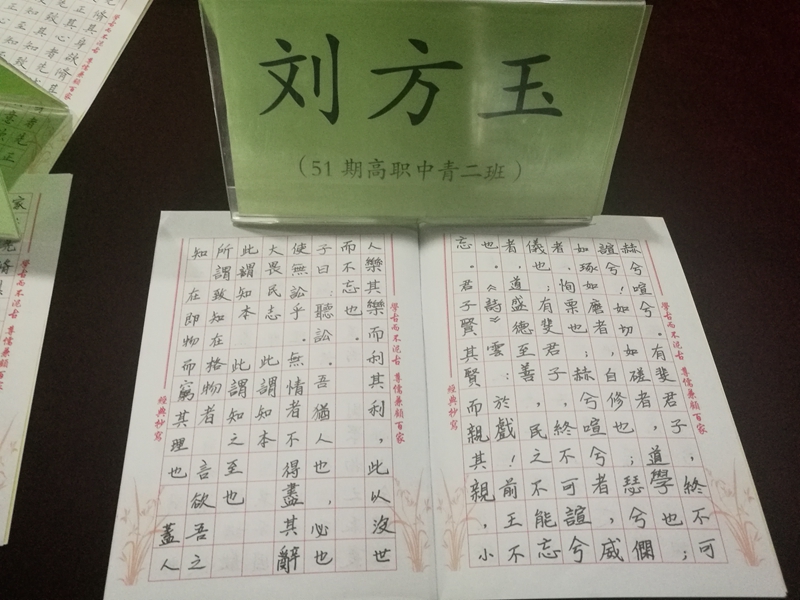 刘方玉
（51期高职中青二班）
赫兮喧兮。有斐君子，終不可
諠兮！如切如磋者，道學也；
如琢如磨者，自修也；瑟兮僩
者，恂栗也；赫兮喧兮者，威
儀也；有斐君子，終不可諠兮
者，道盛德至善，民之不能忘
也。《詩》雲：於戲！前王不
忘。君子賢其賢而親其親，小
學古而不泥古 尊儒兼顧百家
經典抄寫
人樂其樂而利其利，此以沒世
而不忘也。
子曰：聽訟．吾猶人也，必也
使無訟乎．無情者不得盡其辭
大畏民志．此謂知本
此謂知本 此謂知之至也
所謂致知在格物者 言欲吾之
知 在即物而窮其理也 蓋人
學古而不泥古 尊儒兼顧百家
經典抄寫
學古而不泥古 尊儒兼顧百家
學古而不泥古 尊儒兼顧百家